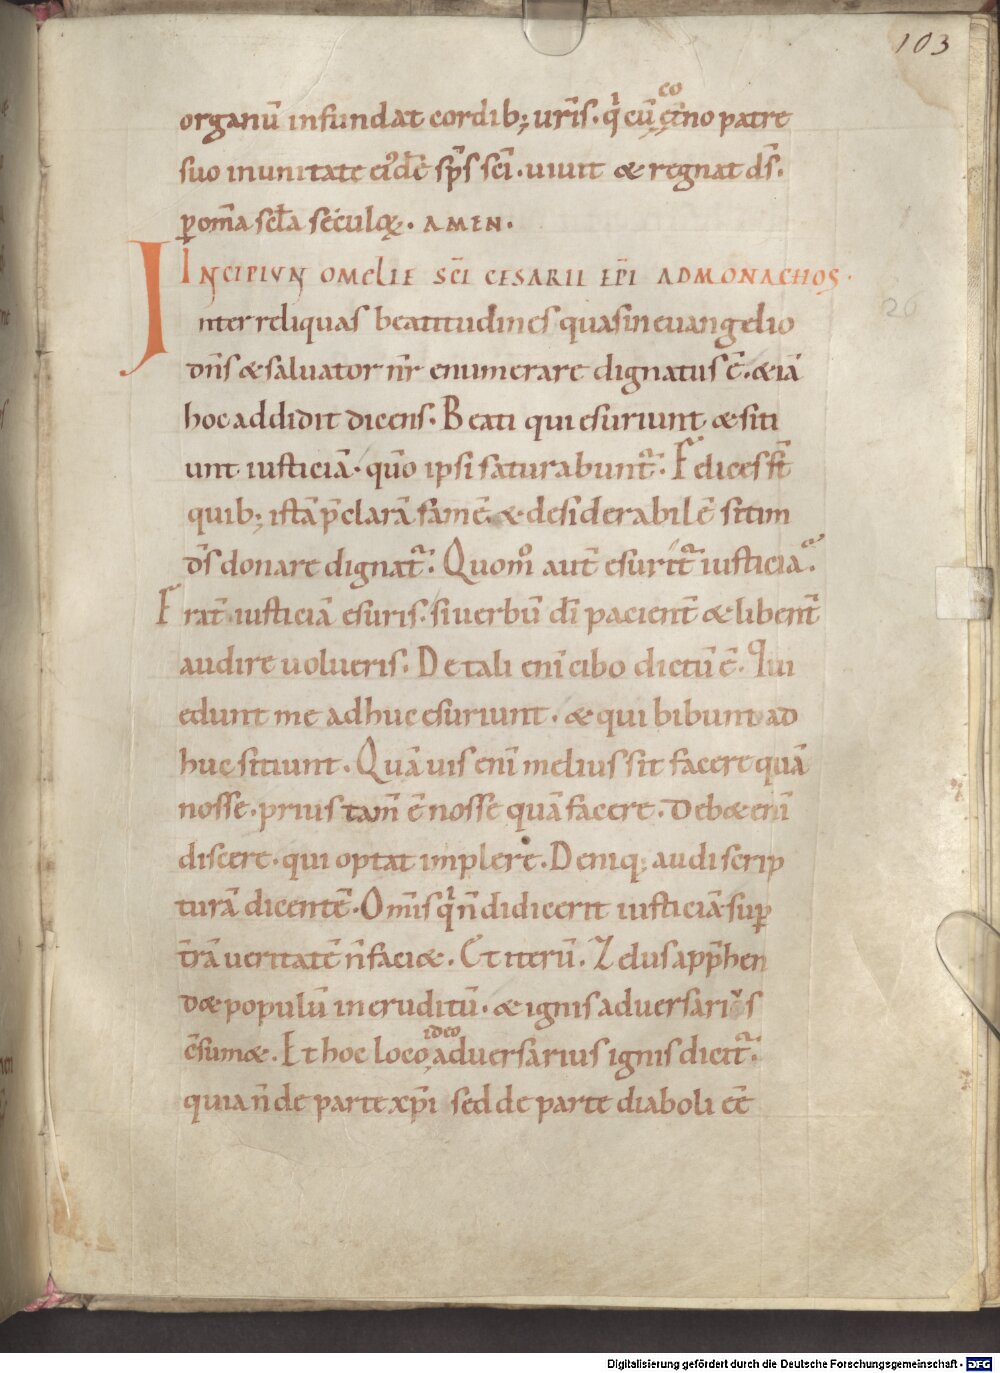 103
organū infundat cordib; ur̄is. qͥ cū coęt̄no patre
suo in unitate eiꝰdē sp̄s sc̄i. uiuit & regnat d̄s.
ꝑ om̄a scl̄a seculoꝝ. AMEN.
INCIPIUN OMELIE SC̄I CESARII EP̄I AD MONACHOS.
Inter reliquas beatitudines quas in euangelio
dn̄s & saluator nr̄ enumerare dignatus ē. & iā
hoc addidit dicens. Beati qui esuriunt & siti
unt iusticiā. quō ipsi saturabunt̄. Felices st̄
quib; istā p̄clarā famē & desiderabilē sitim
d̄s donare dignat̄. Quom̊ aut̄ esurit̄ iusticia.
Frat̄ iusticiā esuris. si uerbū dī pacient̄ & libent̄
audire uolueris. De tali enī cibo dictū ē. Qui
edunt me adhuc esuriunt. & qui bibunt ad
huc sitiunt. Quāuis enī melius sit facere quā
nosse. prius tam̄ ē nosse quā facere. Deb& enī
discere. qui optat implere. Deniq; audi scrip
turā dicentē. Om̄is qͥ n̄ didicerit iusticiā sup̱
t̄rā ueritatē n̄ faci&. Et iterū. Zelus app̄hen
d& populū ineruditū. & ignis aduersarios
c̄sum&. Et hoc loco ideo aduersarius ignis dicit̄.
quia n̄ de parte xp̄i sed de parte diaboli eē
26
Digitalisierung gefördert durch die Deutsche Forschungsgemeinschaft - DFG